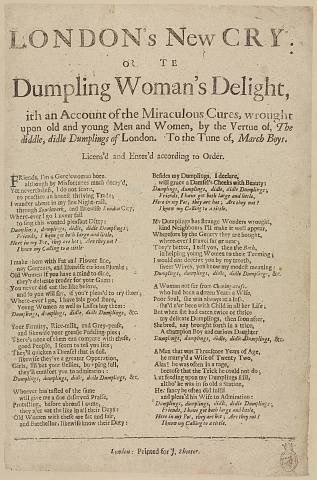 LONDON's New CRY:
OR TE
Dumpling Woman's Delight,
ith an Account of the Miraculous Cures, wrought
upon old and young Men and Women, by the Vertue of, The
diddle, didle Dumplings of London. To the Tune of, March Boys.
Licens'd and Enter'd according to Order.
FRiends, I'm a Gentlewoman been,
although by Misfortunes much decay'd,
Yet nevertheless, I do not scorn,
to practise an honest thriving Trade,
I wander about in my fine Night-rail,
through Southwark, and likewise London City,
Where-ever I go I never fail
to sing this wanted pleasant Ditty:
Dumplings, dumplings, didle, didle Dumplings,
Friends, I have got both large and little,
Here in my Pot, they are hot; Are they not?
I have my Calling to a tittle
I make them with Fat and Flower fine,
nay Currants, and likewise
Old Women if you have a mind to dine,
they're delicate tender for your Gums:
You never did eat the like before,
and so you'd say, if you'd please to try them;
Where-ever I go, I have
young Women as well as Lasses buy them:
Dumplings, dumplings, didle, didle Dumplings,
&c.
Your Furmity, Rice-milk, and Grey-pease,
and likewise your greasie Pudding-pies;
There's none of them can compare with these,
good People, I seem to tell you lies;
They'll quicken a Damsel that is dull,
likewise they've a greater Operation,
Girls, fill but your Bellies, bellies full,
they'll comfort you to admiration:
Dumplings, dumplings, didle, didle Dumplings, &c.
Whoever has tasted of the same
will give me a due deserved Praise,
Protesting, before abroad I came,
they ne'er eat the like in all their Days:
Old Women with these are fat and fair,
and Batchellor, likewise know their Duty:
Besides my Dumplings, I declare,
will grace a Damsel's Cheeks with Beauty:
Dumplings, dumplings, didle, didle Dumplings,
Friends, I have got both large and little,
Here in my Pot, they are hot; Are they not?
I have my Calling to a tittle.
My Dumplings has strange Wonders wrought,
kind Neighbours I'll make it well appear;
Wheresoever by the Gentry they are bought,
where-ever I travel far or near;
They're better, I tell you, then the Bath,
in helping young Women to their Teeming;
I would not deceive you by my troth,
sweet Wives, you know my modest meaning:
Dumplings, dumplings, didle, didle Dumplings, &c.
A Woman not far from
who had been a dozen Years a Wife,
Poor Soul, she was always at a loss,
she'd ne'er been with Child in all her Life;
But when she had eaten twice or thrice
my delicate Dumplings, then soon after,
She bred, nay brought forth in a trice,
a thumping Boy and curious Daughter
Dumplings, dumplings, didle, didle Dumplings,
&c.
A Man that was Threescore Years of Age,
he marry'd a Wife of Twenty Two,
Alas! he was often in a rage,
because that the Trick he could not do;
But feeding upon my Dumplings still,
altho' he was in so old a Station,
Her fancy he often did fulfil
and pleas'd his Wife to Admiration:
Dumplings, dumplings, didle, didle Dumplings,
Friends, I have got both large and little,
Here in my Pot, they are hot; Are they not?
I have my Calling to a tittle.
London: Printed for J. Shooter.